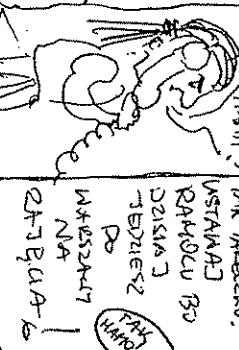 USTAWAJ
RAMOLU BO
DZISIAJ
JEDZIESZ
DO
WARSZAWY
NA
TAK
MAMO